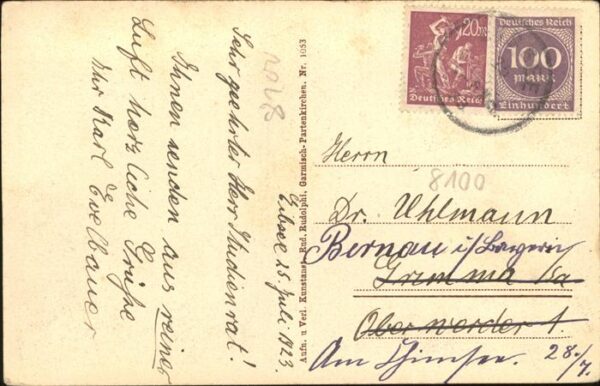 Eibsee 25. Juli 1923.
Sehr geehrter Herr Studienrat!
Ihnen senden aus reiner
Luft herzliche Grüße
Ihr Karl Evelbauer
2028
Aufn. u. Verl. Kunstanst. Rud. Rudolphi, Garmisch-Partenkirchen. Nr. 1053
20M
Deutsches Reich
Deutsches Reich
100
MARK
Einhundert
Herrn
8100
Dr. Uhlmann
Bernau i/Bayern
Grimma i/Sa
Oberwerder 1.
Am Chimsee. 28./7.